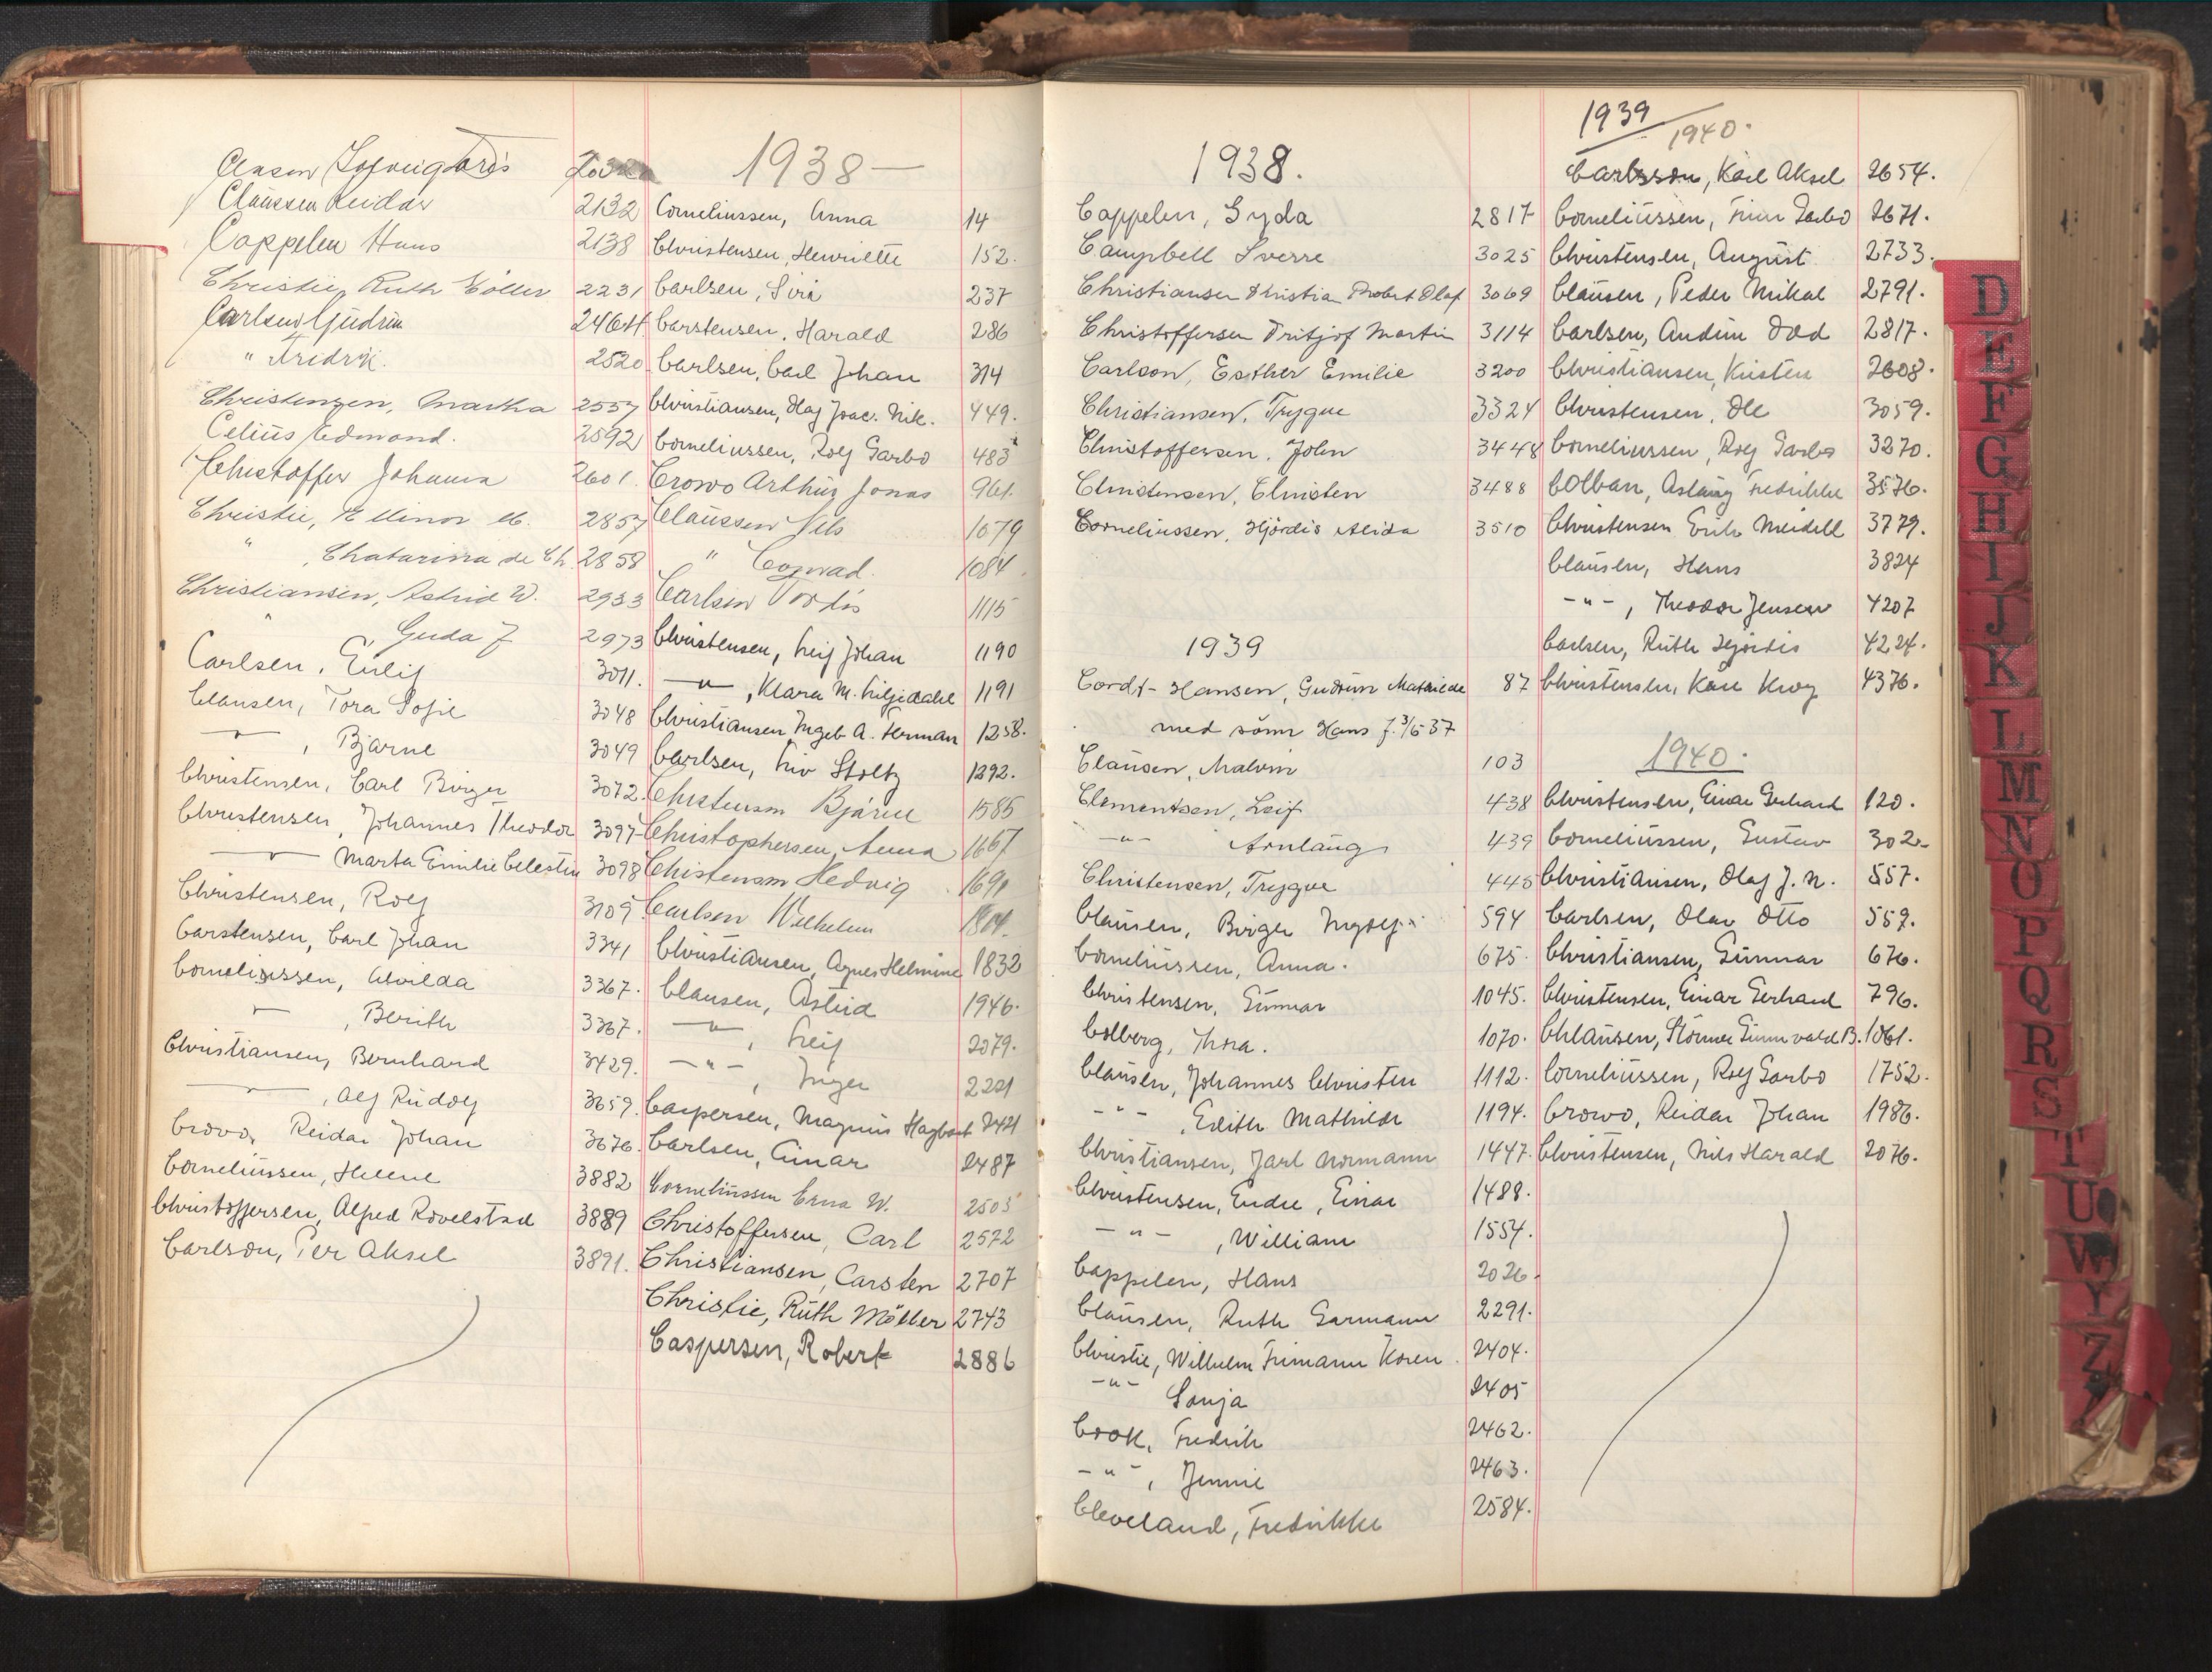 Solveig 
Claussen Reidar 2132
Cappelen Hans 2138
Christie, Ruth Möller 2231
Carlsen Gudrun 2464
" Fredrik. 2520
Christensen, Martha 2557
Celius Edmond. 2592
Christoffer Johanna 2601.
Christie, Ellinor M. 2857
" , Chatarina de Ch. 2858
Christiansen, Astrid W. 2933
" Gerda J 2973
Carlsen, Eilif 3011.
Clausen, Tora Sofie 3048
—"— , Bjarne 3049
Christensen, Carl Birger 3072.
Christensen, Johannes Theodor 3097
—"— Marta Emilie Celestin 3098
Christensen, Rolf 3109
Carstensen, Carl Johan 3341
Corneliussen, Alvilda 3367.
—"— , Berith 3367.
Christiansen, Bernhard 3429.
—"— , Alf Rudolf 3659.
Crowo, Reidar Johan 3676.
Corneliussen, Helene 3882
Christoffersen, Alfred Rövelstad 3889
Carlson, Per Aksel 3891.
1938—
Corneliussen, Anna 14
Christensen, Henriette 152.
Carlsen, Siri 237
Carstensen, Harald 286
Carlsen, Carl Johan 314
Christiansen, Olaf Isac. Nik. 449.
Corneliussen, Rolf Garbo 483
Crowo Arthur Jonas 961.
Claussen Nils 1079
" Conrad. 1084.
Carlsen Tordis 1115
Christensen, Leif Johan 1190
—"— , Klara M. Liljedahl 1191
Christiansen Ingeb. A. Herman 1258.
Carlsen, Liv Stoltz 1292.
Christensen Bjarne 1585
Christophersen, Anna 1667
Christensen Hedvig 1691
Carlsen Wilhelm
Christiansen, Agnes Helmine 1832
Clausen, Astrid 1946.
—"— , Leif 2079.
—"— , Inger 2221
Caspersen, Magnus Hagbart 2421
Carlsen, Einar 2487
Corneliussen Erna W. 2505
Christoffersen, Carl 2572
Christiansen, Carsten 2707
Christie, Ruth Möller 2743
Caspersen, Robert 2886
1938.
Cappelen, Gyda 2817
Campbell Sverre 3025
Christiansen Kristian Robert Olaf 3069
Christoffersen Fritjof Martin 3114
Carlson, Esther Emilie 3200
Christiansen, Trygve 3324
Christoffersen, John 3448
Christensen, Christen 3488
Corneliussen, Hjördis Alida 3510
1939
Cordt-Hansen, Gudrun Mathilde 87
med sönn Hans f. 3/6 37
Clausen, Malvin 103
Clementsen, Leif 438
—"— Arnlaug 439
Christensen, Trygve 445
Clausen, Birger Ingolf 594
Corneliussen, Anna. 675.
Christensen, Gunnar 1045.
Colberg, Thora. 1070.
Clausen, Johannes Christen 1112.
—"— , Edith Mathilde 1194.
Christiansen, Jarl Normann 1447.
Christensen, Endre, Einar 1488.
—"— , William 1554.
Cappelen, Hans 2026.
Clausen, Ruth Garmann 2291.
Christie, Wilhelm Frimann Koren 2404.
—"— Sonja 2405
Cook, Fredrik 2462.
—"— , Jennie 2463.
Cleveland, Fredrikke 2584.
1939
1940.
Carlsson, Karl Aksel 2654.
Corneliussen, Finn Garbo 2671.
Christensen, August 2733.
Clausen, Peder Mikal 2791.
Carlsen, Audun Odd 2817.
Christiansen, Kristen 2808.
Christensen, Ole 3059.
Corneliussen, Rolf Garbo 3270.
Colban, Aslaug Fredrikke 3576.
Christensen Erik Meidell 3779.
Clausen, Hans 3824
—"— , Theodor Jensen 4207
Carlsen, Ruth Hjördis 4224.
Christensen, Kåre Krog 4376.
1940.
Christensen, Einar Gerhard 120.
Corneliussen, Gustav 302.
Christiansen, Olaf J. N. 557.
Carlsen, Olav Otto 559.
Christiansen, Gunnar 676.
Christensen, Einar Gerhard 796.
Chlausen, Störmer Gunnvald B. 1061.
Corneliussen, Rolf Garbo 1752.
Crowo, Reidar Johan 1986.
Christensen, Nils Harald 2076.
D
E
F
G
H
I
J
K
L
M
N
O
P
Q
R
S
T
U
W
Y
Z